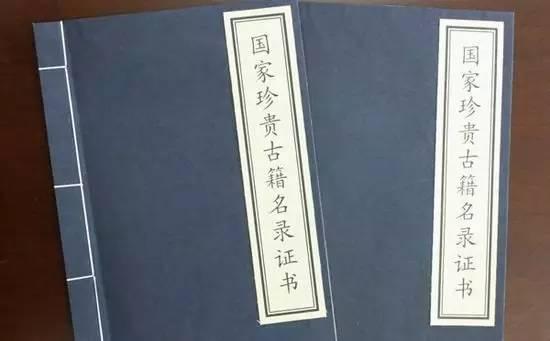 国家珍贵古籍名录证书
国家珍贵古籍名录证书